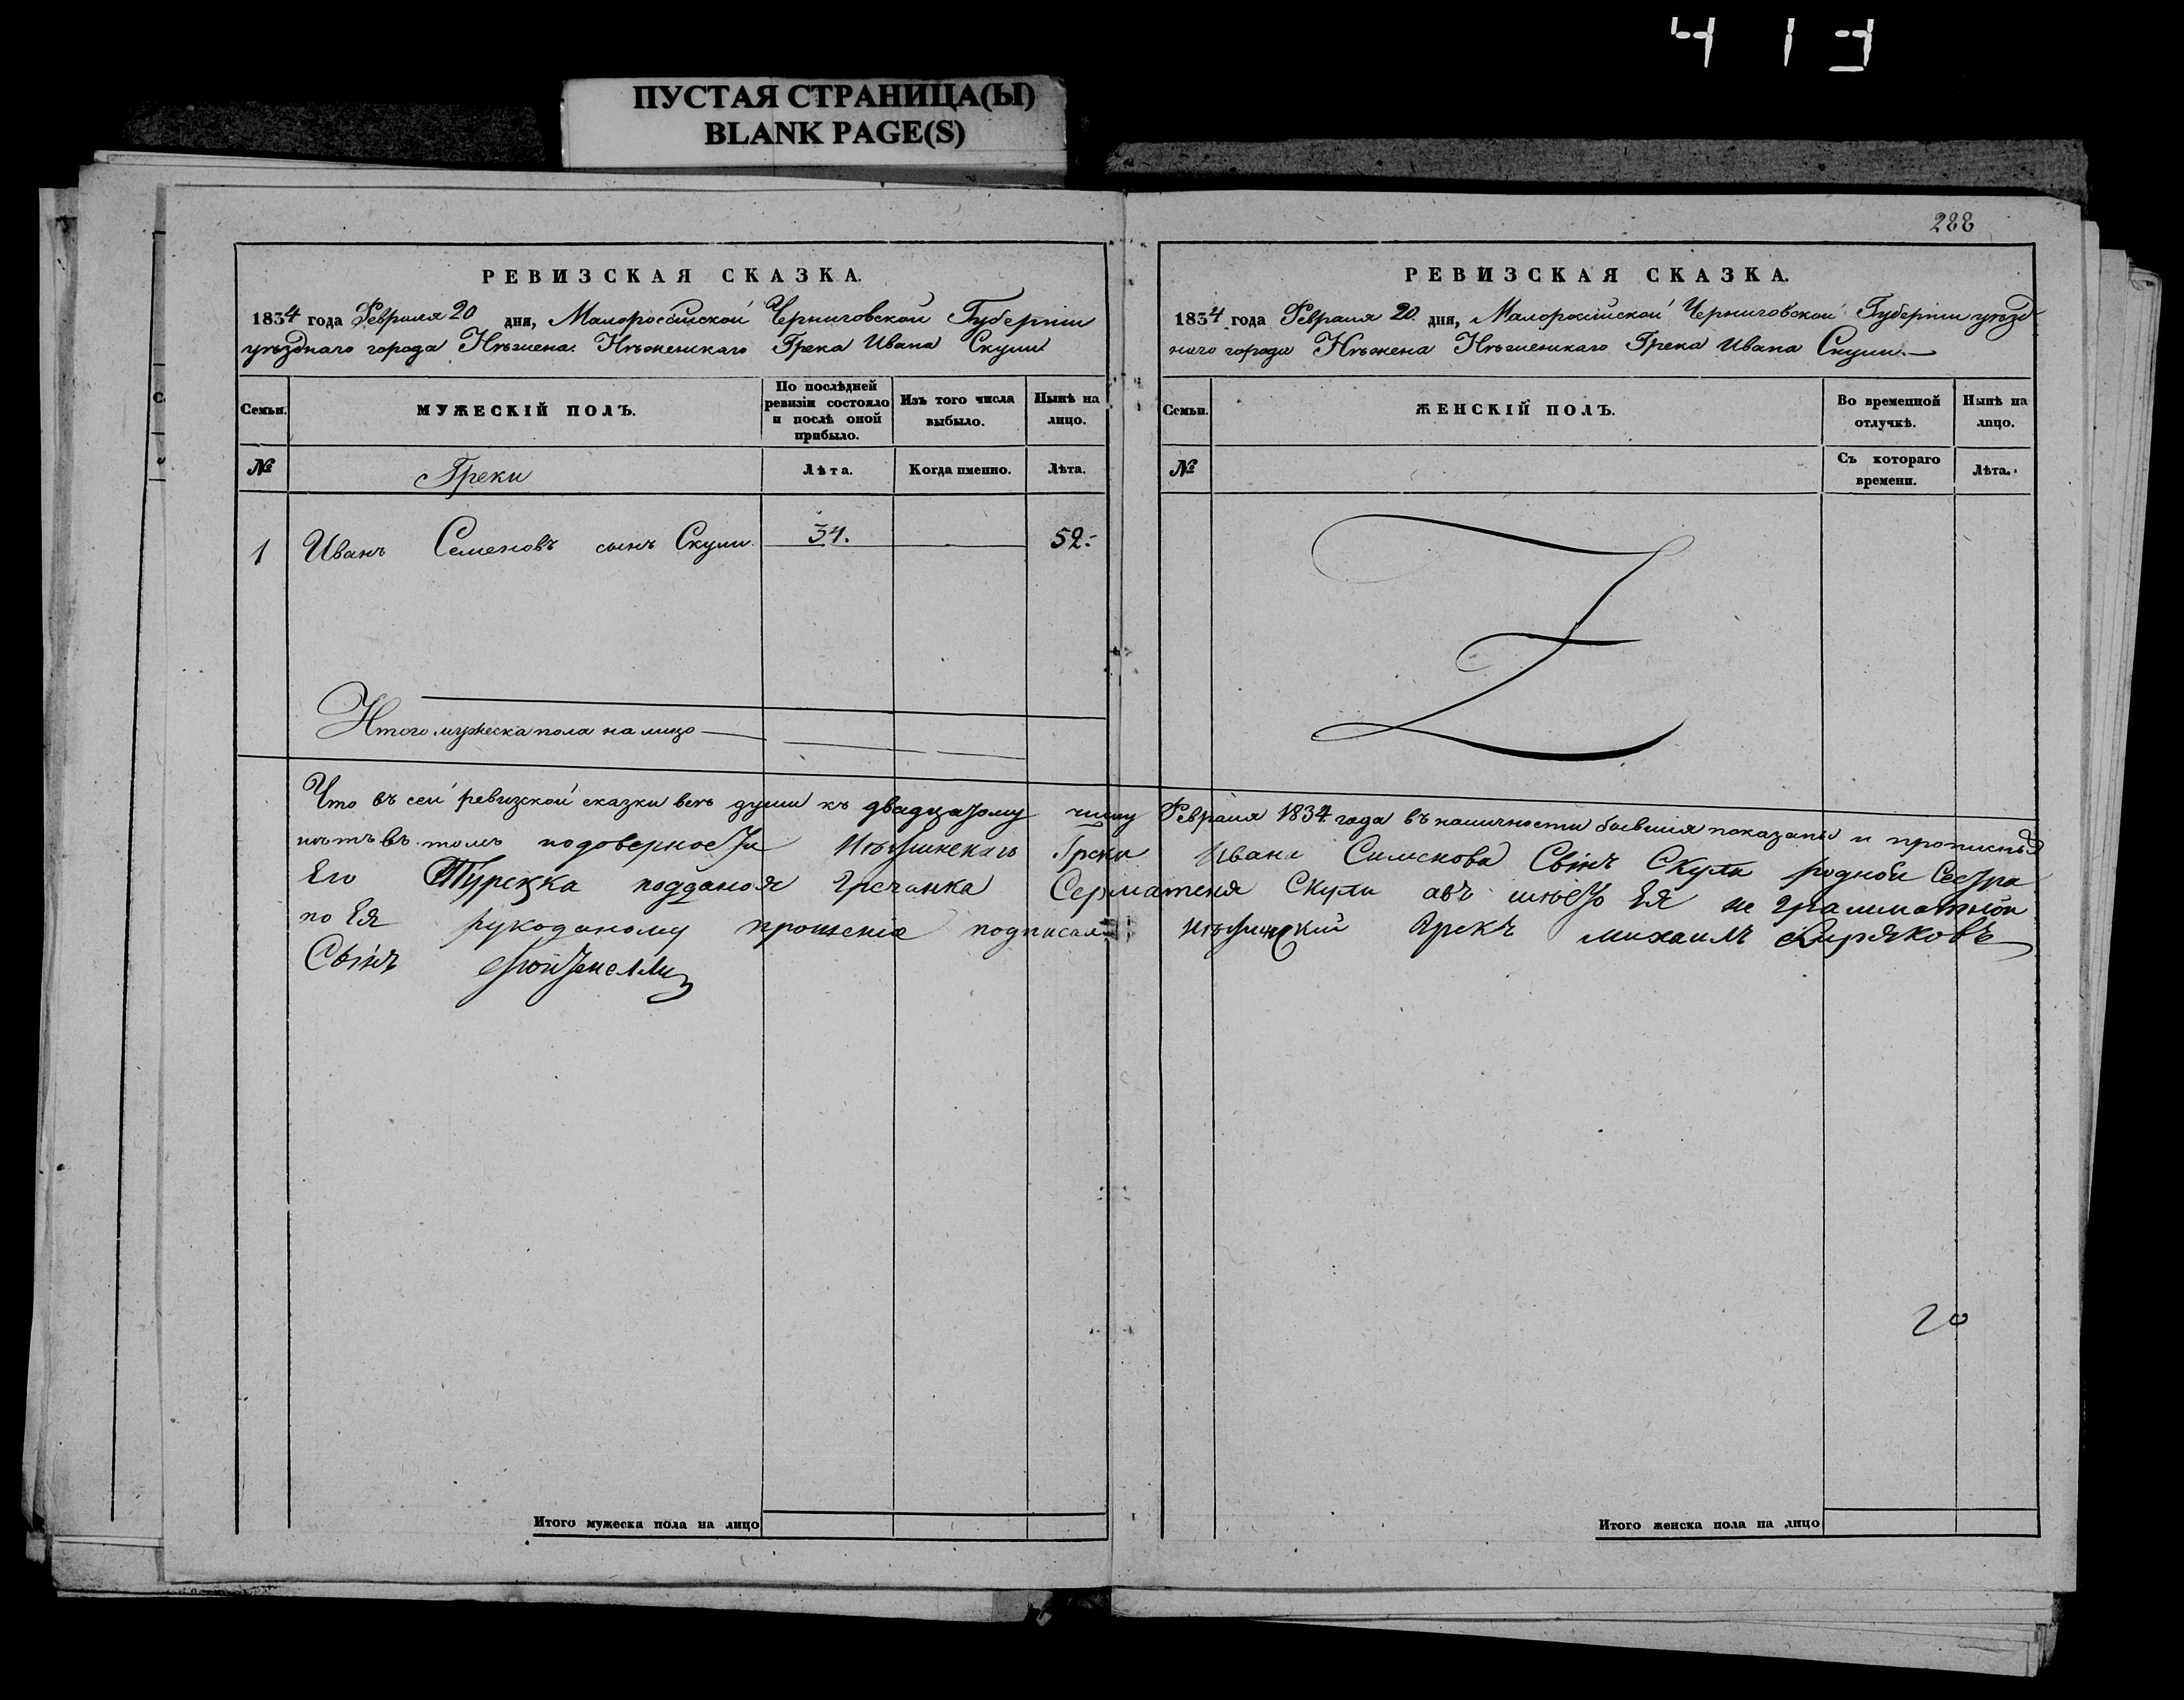 413
ПУСТАЯ СТРАНИЦА(Ы)
BLANK PAGE(S)
РЕВИЗСКАЯ СКАЗКА.
1834 года Февраля 20 дня, Малороссійской Черниговской Губерніи
уѣзднаго города Нѣжина. Нѣженскаго Грека Ивана Скули
Семьи.
МУЖЕСКІЙ ПОЛЪ.
По послѣдней ревизіи состояло и послѣ оной прибыло.
Изъ того числа выбыло.
Нынѣ на лицо.
№
Греки
Лѣта.
Когда именно.
Лѣта.
1 Иванъ Семеновъ сынъ Скули. 34. 52.
Итого мужеска пола на лицо
288
РЕВИЗСКАЯ СКАЗКА.
1834 года Февраля 20. дня, Малороссійской Черниговской Губерніи уѣзд
наго города Нѣжена Нѣженскаго Грека Ивана Скули.
Семьи.
ЖЕНСКІЙ ПОЛЪ.
Во временной отлучкѣ.
Нынѣ на лицо.
№
Съ котораго времени.
Лѣта.
Что въ сей ревизской сказки всѣ души къ двадцатому числу Февраля 1834 года въ наличности бывшія показаны и
нѣтъ въ томъ Грека Ивана Скули родной Сестра
Его Турецка подданоя Гречанка Скули Ея не граматной
по Ея рукоданому прошеніе подписалъ Грекъ михаилъ Киряковъ
Свінъ
20
Итого мужеска пола на лицо
Итого женска пола на лицо